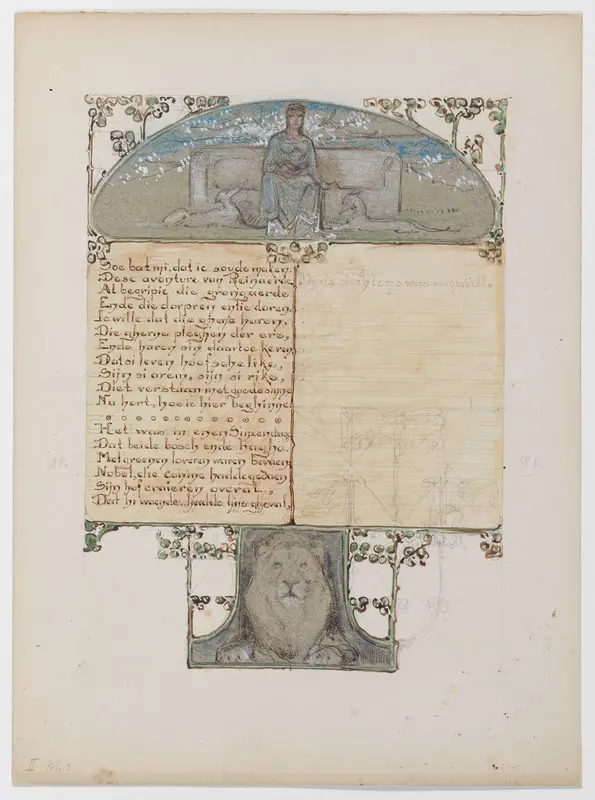 Soe bat mi, dat ic soude maken
Dese avonture van Reinaerde
Al begripic die grongaerde
Ende die dorpren entie doren,
Ic wille dat die ghene horen,
Die gherne pleghen der ere,
Ende haren sin daartoe keren
Dat si leven hoofschelike,
Sijn si arem, sijn si rike,
Diet verstaan met goede sinne
Nu hort, hoe ic hier beghinne
Het was in enen Sinxendage
Dat beide bosch ende haghe
Met groenen loveren waren bevaen
Nobel, die coninc hadde gedaen
Sijn hof craieren overal,
Dat hi waende, hadde hijs gheval,
II